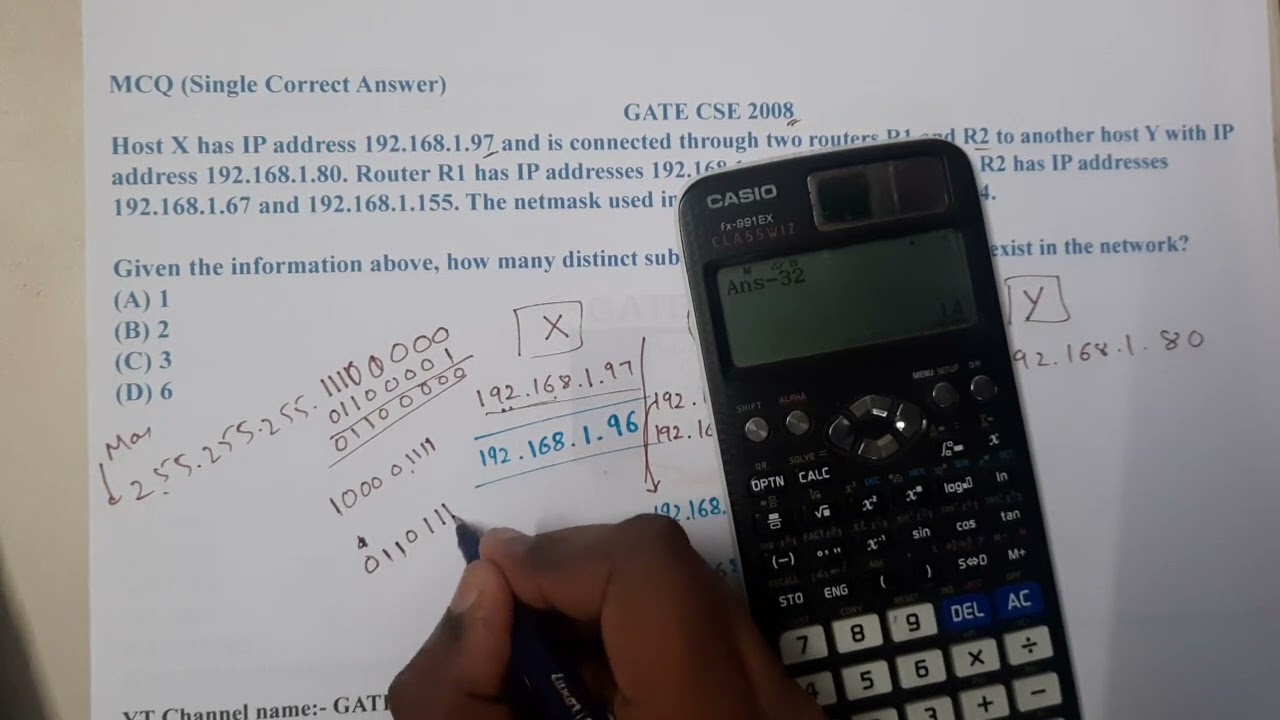 MCQ (Single Correct Answer)
GATE CSE 2008
Host X has IP address 192.168.1.97 and is connected through two routers R1 and R2 to another host Y with IP
address 192.168.1.80. Router R1 has IP addresses 192.168. R2 has IP addresses
192.168.1.67 and 192.168.1.155. The netmask used in 4.
Given the information above, how many distinct sub exist in the network?
(A) 1
(B) 2
(C) 3
(D) 6
X
Y
192.168.1.97
192.168.1.96
92.168.1.80
192.1
192.16
192.168.
255.255.255.11100000
01100001
01100000
10000,1111
0110111
CASIO
fx-991EX
CLASSWIZ
Ans-32
14
SHIFT ALPHA MENU SETUP ON
OPTN CALC x
x² ln
(-) x⁻¹ sin cos tan
STO ENG ( ) S⇔D M+
7 8 9 DEL AC
4 5 6 × ÷
3 + −
YT Channel name:- GATE